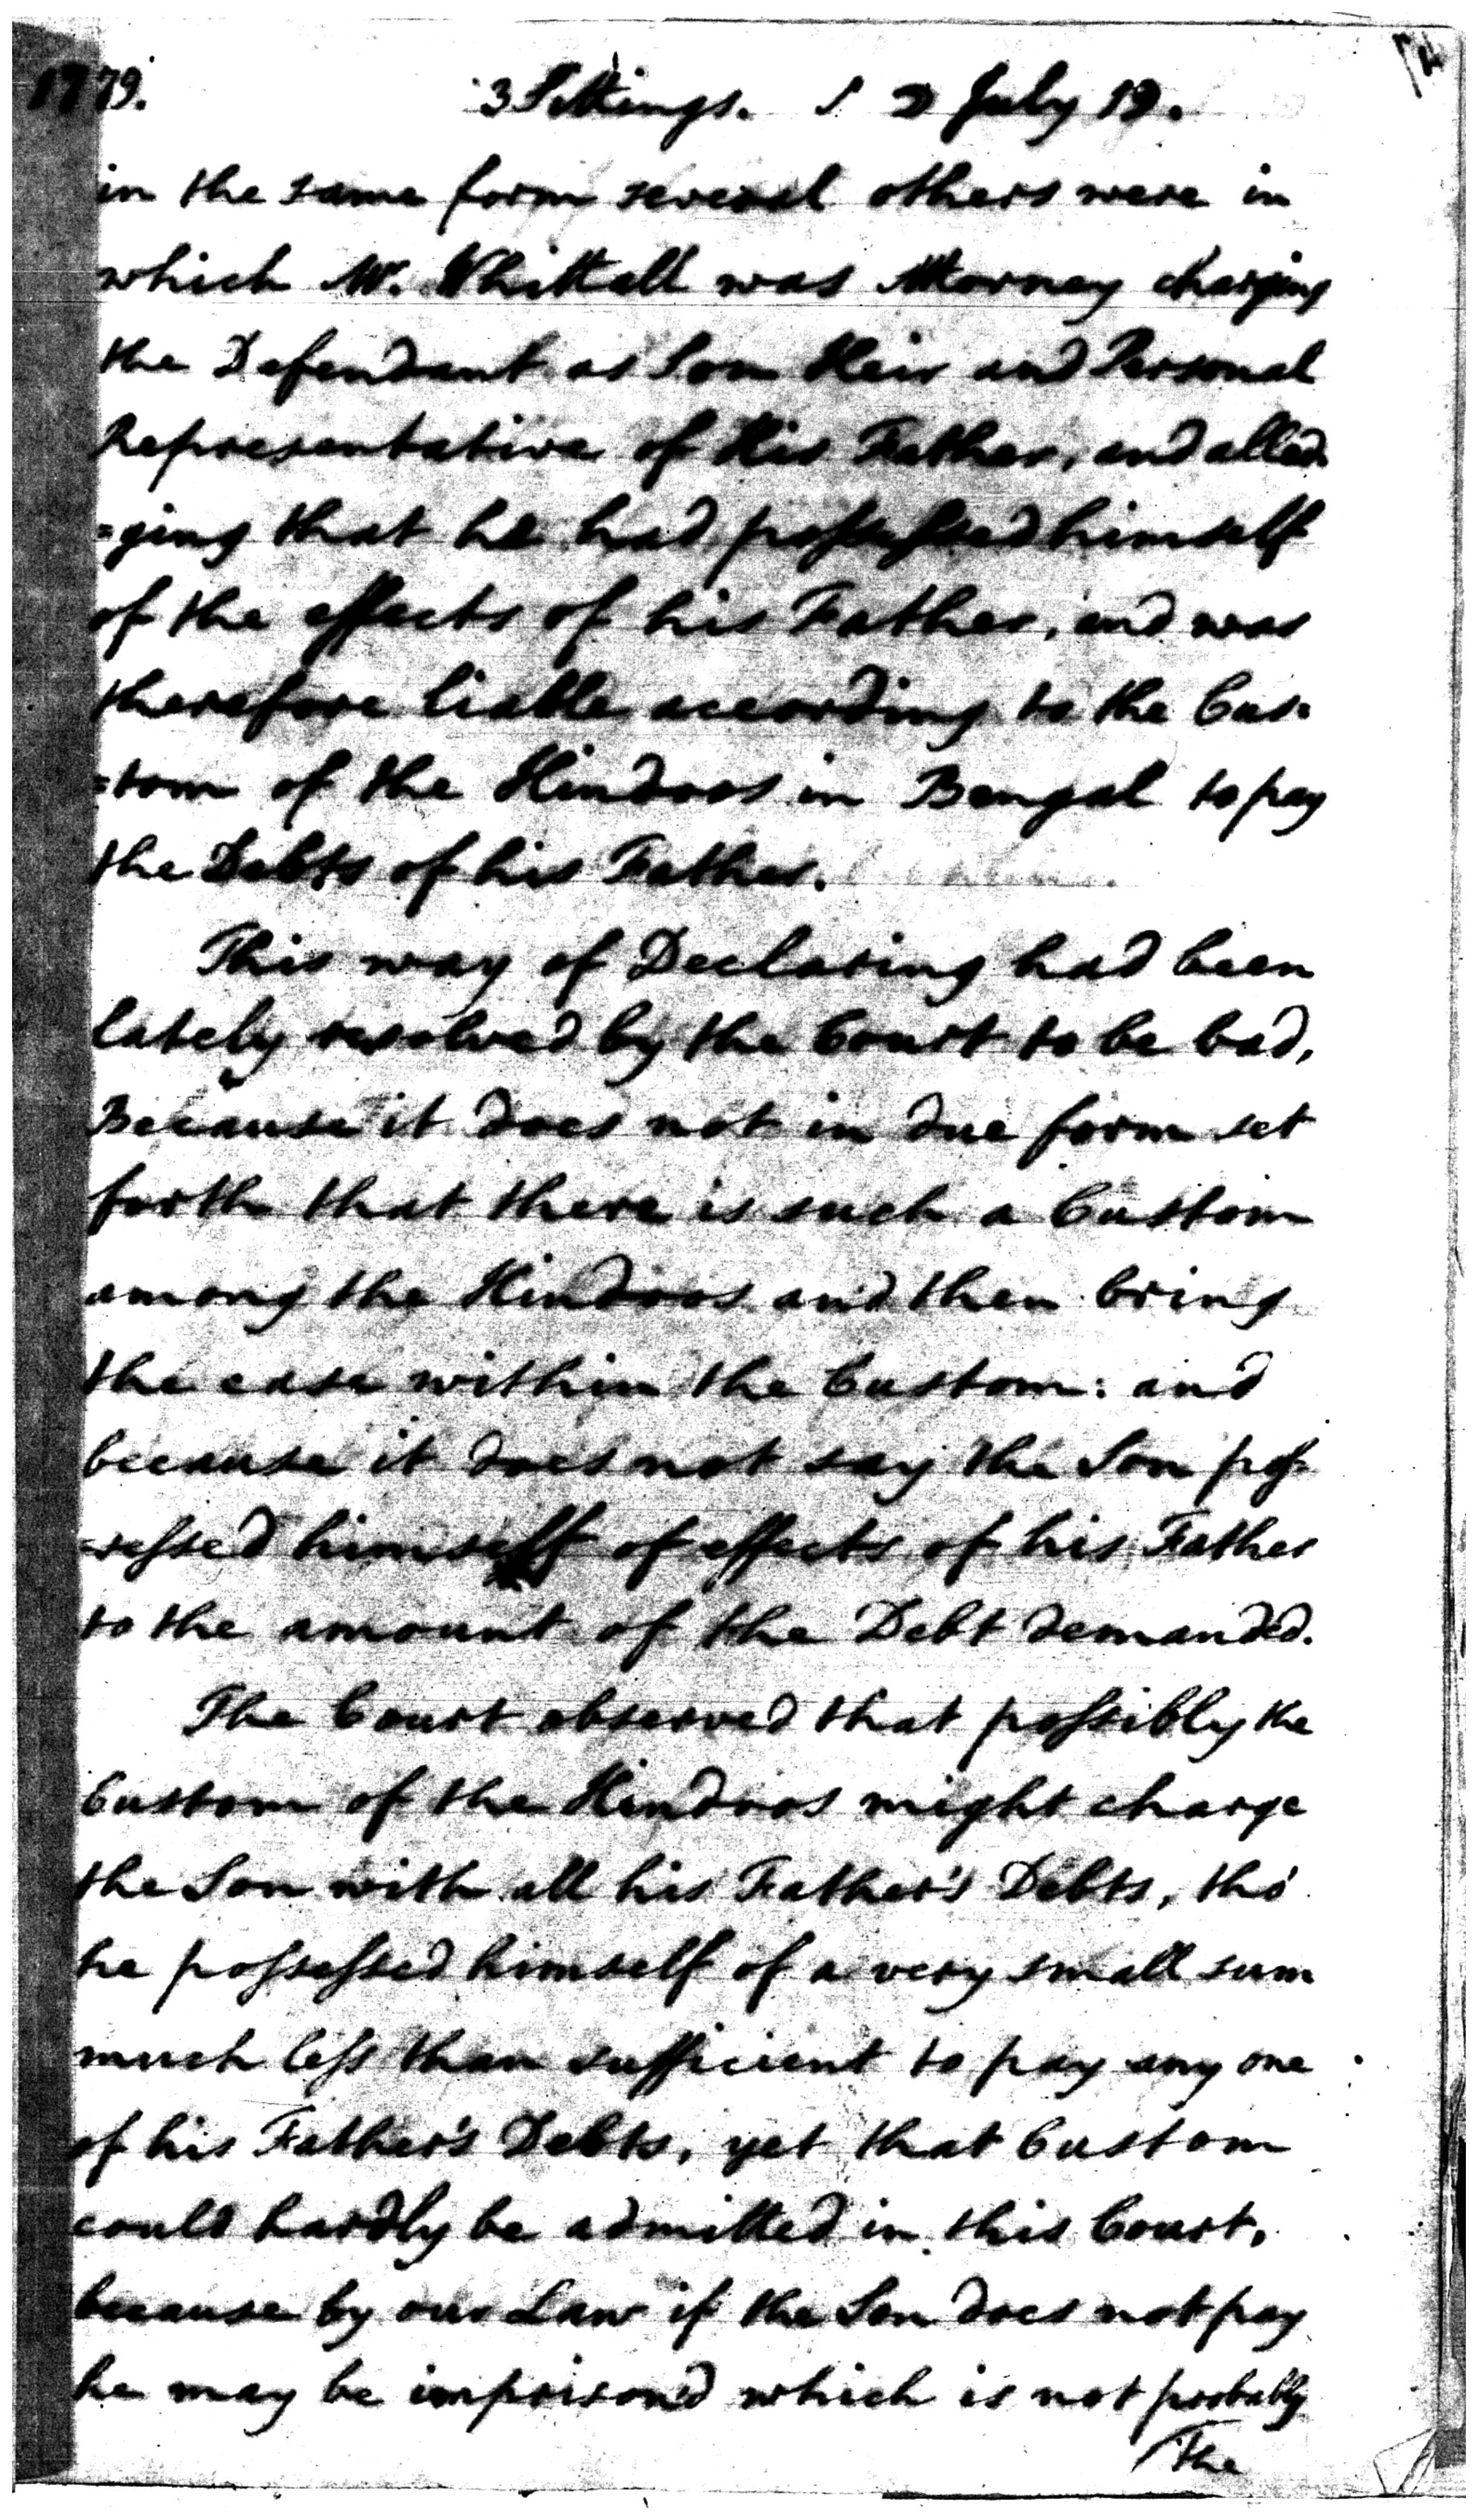 1779. 3 Sittings. July 19.
in the same form several others were in
which Mr. Whittall was Attorney charging
the Defendant as Son Heir and Personal
Representative of His Father, and alled
=ging that he had possessed himself
of the effects of his Father, and was
therefore liable according to the Cus=
=tom of the Hindoos in Bengal to pay
the Debts of his Father.
This way of Declaring had been
lately resolved by the Court to be bad,
Because it does not in due form set
forth that there is such a Custom
among the Hindoos and then bring
the case within the Custom: and
because it does not say the Son pos=
=sessed himself of effects of his Father
to the amount of the Debt demanded.
The Court observed that possibly the
Custom of the Hindoos might charge
the Son with all his Father's Debts, tho'
he possessed himself of a very small sum
much less than sufficient to pay any one
of his Father's Debts, yet that Custom
could hardly be admitted in this Court,
because by our Law if the Son does not pay
he may be imprison'd which is not probably
The